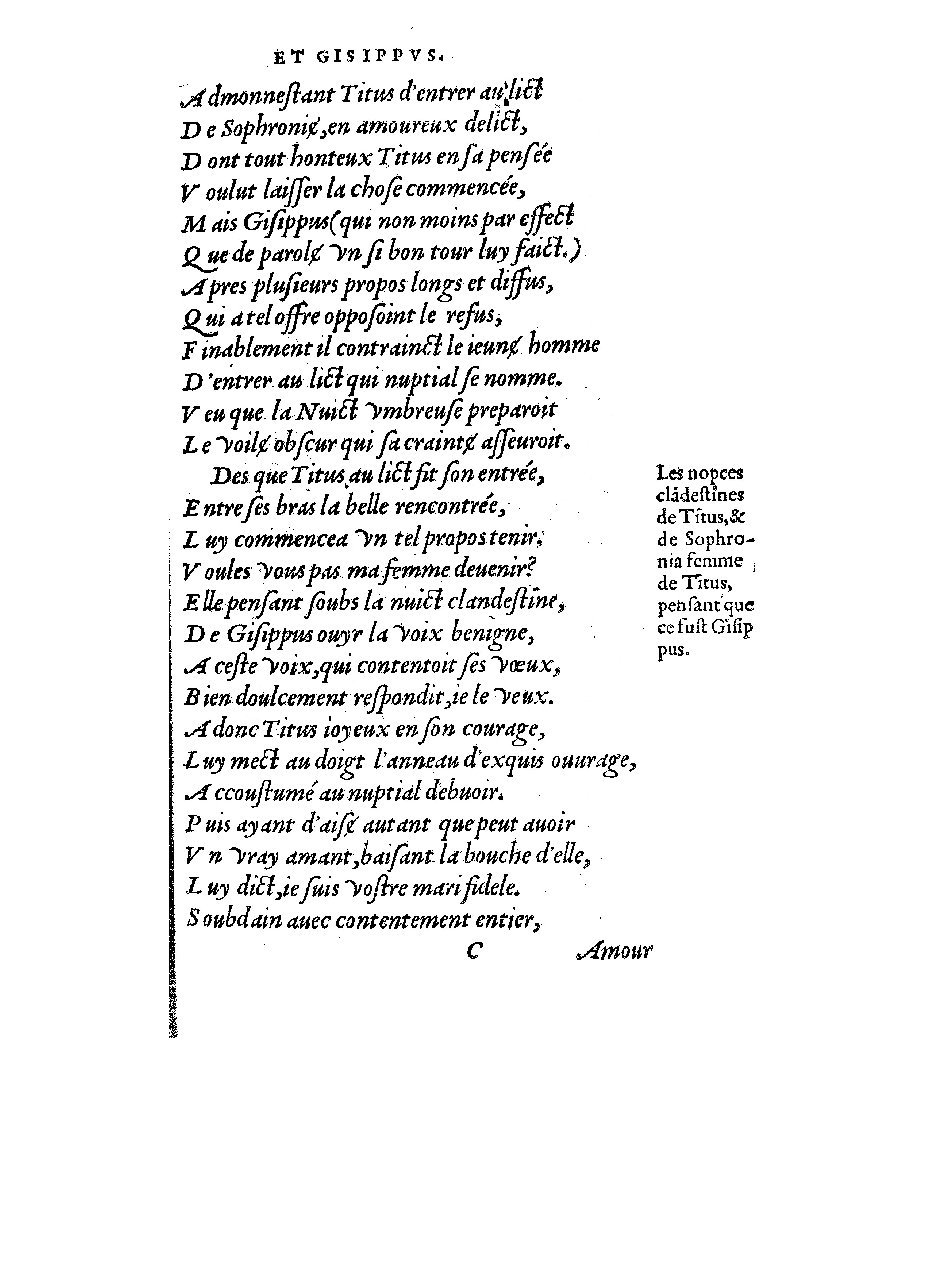 ET GISIPPVS.
Admonneſtant Titus d'entrer au lict
De Sophronię, en amoureux delict,
Dont tout honteux Titus en ſa penſée
Voulut laiſſer la choſe commencée,
Mais Giſippus (qui non moins par effect
Que de parolę vn ſi bon tour luy faict.)
Apres pluſieurs propos longs et diffus,
Qui a tel offre oppoſoint le refus,
Finablement il contrainct le ieunę homme
D'entrer au lict qui nuptial ſe nomme.
Veu que la Nuict vmbreuſe preparoit
Le voilę obſcur qui ſa craintę aſſeuroit.
Des que Titus au lict fit ſon entrée,
Entre ſes bras la belle rencontrée,
Luy commencea vn tel propos tenir,
Voules vous pas ma femme deuenir?
Elle penſant ſoubs la nuict clandeſtine,
De Giſippus ouyr la voix benigne,
A ceſte voix, qui contentoit ſes vœux,
Bien doulcement reſpondit, ie le veux.
Adonc Titus ioyeux en ſon courage,
Luy mect au doigt l'anneau d'exquis ouurage,
Accouſtumé au nuptial debuoir.
Puis ayant d'aiſę autant que peut auoir
Vn vray amant, baiſant la bouche d'elle,
Luy dict, ie ſuis voſtre mari fidele.
Soubdain auec contentement entier,
C Amour
Les nopces
clãdeſtines
de Titus, &
de Sophro-
nia femme
de Titus,
penſant que
ce fuſt Giſip
pus.